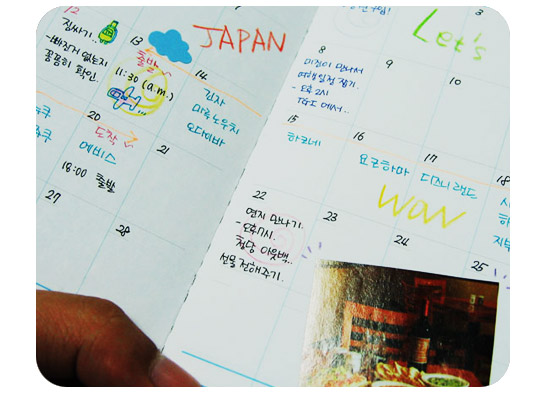 JAPAN
Let's
12
짐싸기..
-빠진거 없는지
꼼꼼히 확인.
13
출발
11:30 (a.m.)
14
긴자
마루노우치
오다이바
20
도착
에비스
18:00 출발
21
27
28
3
8
미정이 만나서
여행일정 잡기.
- 오후 2시
TGI 에서..
9
10
15
하코네
16
요코하마
17
디즈니랜드
18
wow
22
연지 만나기.
- 오후 7시.
청담 아웃백..
선물 전해주기.
23
24
25